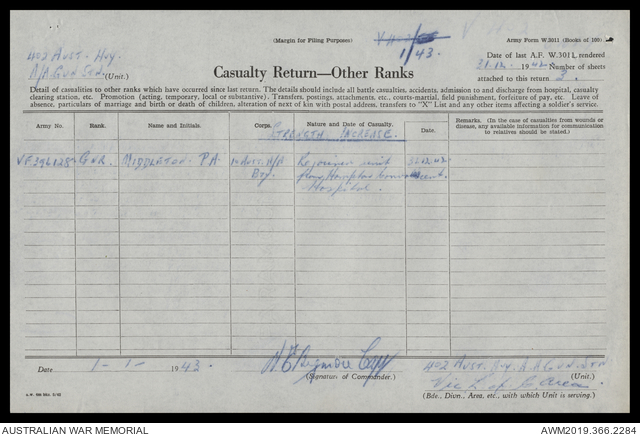 (Margin for Filing Purposes)
1/43.
Army Form W.3011 (Books of 100)
402 Aust. Hvy.
A/A Gun Stn. (Unit.)
Casualty Return—Other Ranks
Date of last A.F. W.3011, rendered
31.12. 1942. Number of sheets
attached to this return 3.
Detail of casualties to other ranks which have occurred since last return. The details should include all battle casualties, accidents, admission to and discharge from hospital, casualty
clearing station, etc. Promotion (acting, temporary, local or substantive). Transfers, postings, attachments, etc., courts-martial, field punishment, forfeiture of pay, etc. Leave of
absence, particulars of marriage and birth or death of children, alteration of next of kin with postal address, transfers to "X" List and any other items affecting a soldier's service.
Army No. Rank. Name and Initials. Corps. Nature and Date of Casualty. Date. Remarks. (In the case of casualties from wounds or
disease, any available information for communication
to relatives should be stated.)
STRENGTH INCREASE.
GNR. MIDDLETON. P.A. Aust. A/A Rejoined unit 31.12.42
Bty. from Hampton
Hospital.
Date 1-1- 1943. Capt 402 Aust. Hvy. A.A. Gun Stn
(Signature of Commander.) (Unit.)
Vic L of C Area.
(Bde., Divn., Area, etc., with which Unit is serving.)
AUSTRALIAN WAR MEMORIAL
AWM2019.366.2284